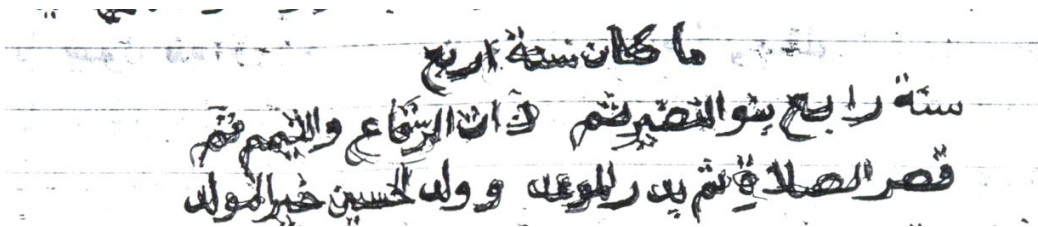 ما كان سنة اربع
سنة رابع بنو النضير ثم ذات الرقاع والتيمم ثم
قصر الصلاة ثم بدر الموعد وولد الحسين خير المولد